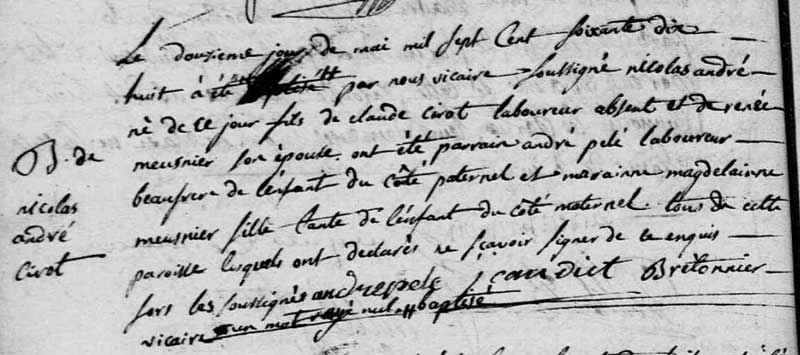 Le douzieme jour de mai mil sept Cent soixante dix
huit à été par nous vicaire soussigné nicolas andré
né de ce jour fils de claude Cirot laboureur absent et de renée
B. de meusnier son épouse. ont été parrain andré pelé laboureur
nicolas beaufrere de l'enfant du côté paternel et marainne magdelainne
andré meusnier fille tante de l'enfant du coté maternel. tous de cette
Cirot paroisse lesquels ont declarés ne sçavoir signer de ce enquis
fors les soussignés andrepele Britonnier
vicaire un mot rayé nul baptisé